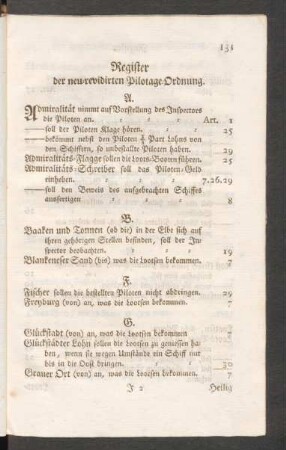 131
Register
der neu-revidirten Pilotage-Ordnung.
A.
Admiralität nimmt auf Vorstellung des Inspectors
die Piloten an. Art. 1
—— soll der Piloten Klage hören. 25
—— bekömmt nebst den Piloten ¾ Part Lohns von
den Schiffern, so unbestallte Piloten haben. 29
Admiralitäts-Flagge sollen die Loots-Booten führen. 25
Admiralitäts-Schreiber soll das Piloten-Geld
einheben. 7.26.29
—— soll den Beweis des aufgebrachten Schiffes
ausfertigen 8
B.
Baaken und Tonnen (ob die) in der Elbe sich auf
ihren gehörigen Stellen befinden, soll der In-
spector beobachten. 19
Blankeneser Sand (bis) was die Lootsen bekommen. 7
F.
Fischer sollen die bestellten Piloten nicht abdringen. 29
Freyburg (von) an, was die Lootsen bekommen. 7
G.
Glückstadt (von) an, was die Lootsen bekommen 7
Glückstädter Lohn sollen die Lootsen zu geniessen ha-
ben, wenn sie wegen Umstände ein Schiff nur
bis in die Oost bringen. 30
Grauer Ort (von) an, was die Lootsen bekommen. 7
J 2 Heilig